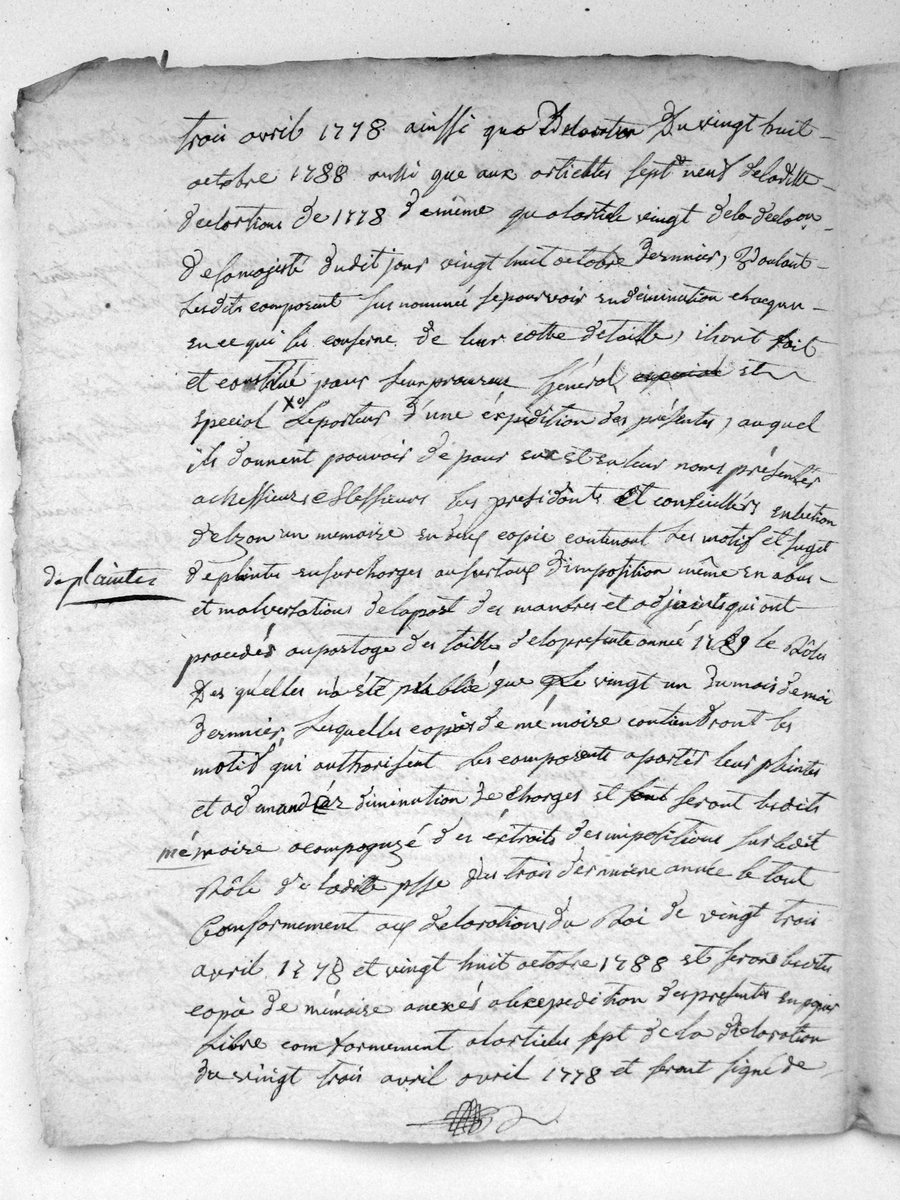 trois avril 1778. ainssi que Declaration Du vingt huit
octobre 1788 aussi que aux articlles sept neuf deladitte
declartions de 1778 demême qualarticle vingt dela declaon
de samajesté dudit jour vingt huit octobre Dernnier, Voulant
Lesdits composant sus nommé sepourvoir endiminution chaqun
en ce qui les conserne de leur cotte detaille, ilsont fait
et constitué pour leurprocureur Général especial et
special Leporteur d'une éxpédition des présentes, auquel
ils donnent pouvoir de pour eux et en leur noms présenter
a Messieurs Les presidents Et conseillérs enlection
un memoire en deux copie contenant Les motif et suget
de plaintes
deplaintes ensurcharges ausurtaux d'imposition même en abus
et malversations delapart des mandres et adjoints qui ont
procedés aupartage des taille delapresente année 1789 le Rôles
Des quelles n'a été plublié que Le vingt un dumois demai
dernnier, Lesquelles copies de mémoire contiendront les
motif qui authorisent les composants aportér leur plaintes
et ademandér diminution de charges et seront lesdits
mémoire acompagnzé des éxtraits des impositions sur ledit
Rôle de laditte psse des trois derniere année le tout
Conformement aux declarations du Roi de vingt trois
avril 1778 et vingt huit octobre 1788 et seront lesdites
copie de mémoire anexés alexpedition des presentes en papier
Libre comformement alarticles spt de la declaration
du vingt trois avril avril 1778 et seront signé de